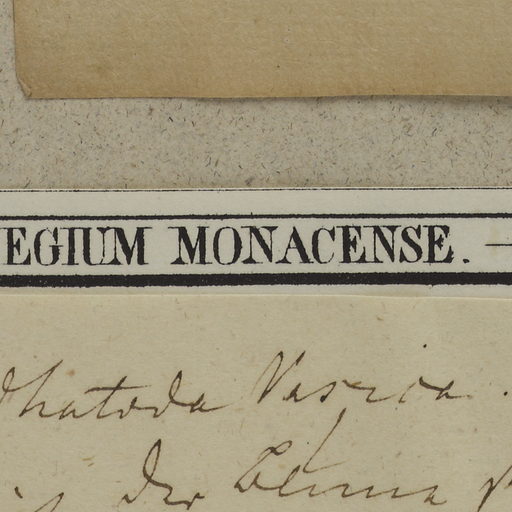 EGIUM MONACENSE. —
dhatoda Vasica.
der